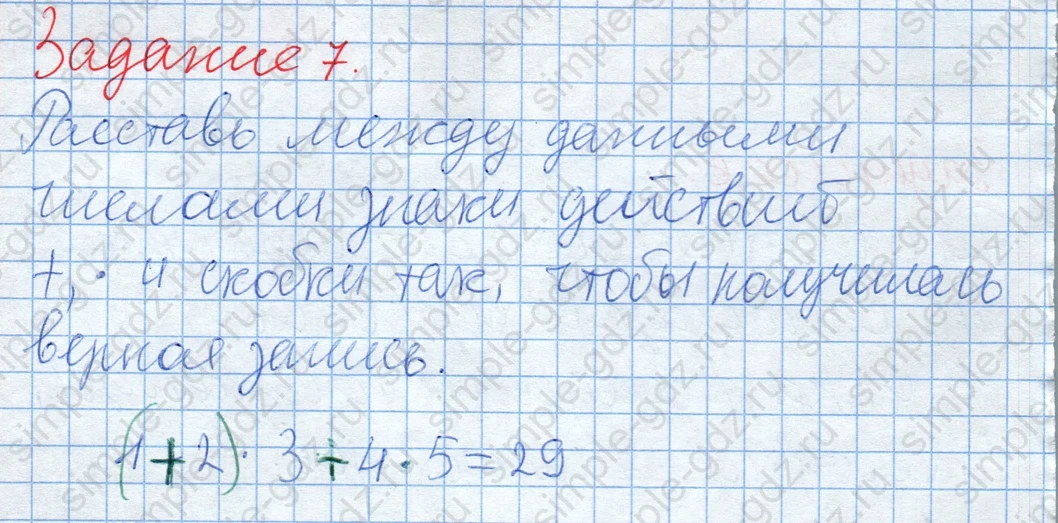 Задание 7.
Расставь между данными
числами знаки действий
+, · и скобки так, чтобы получилась
верная запись.
(1+2)· 3+4·5=29
simple-gdz.ru